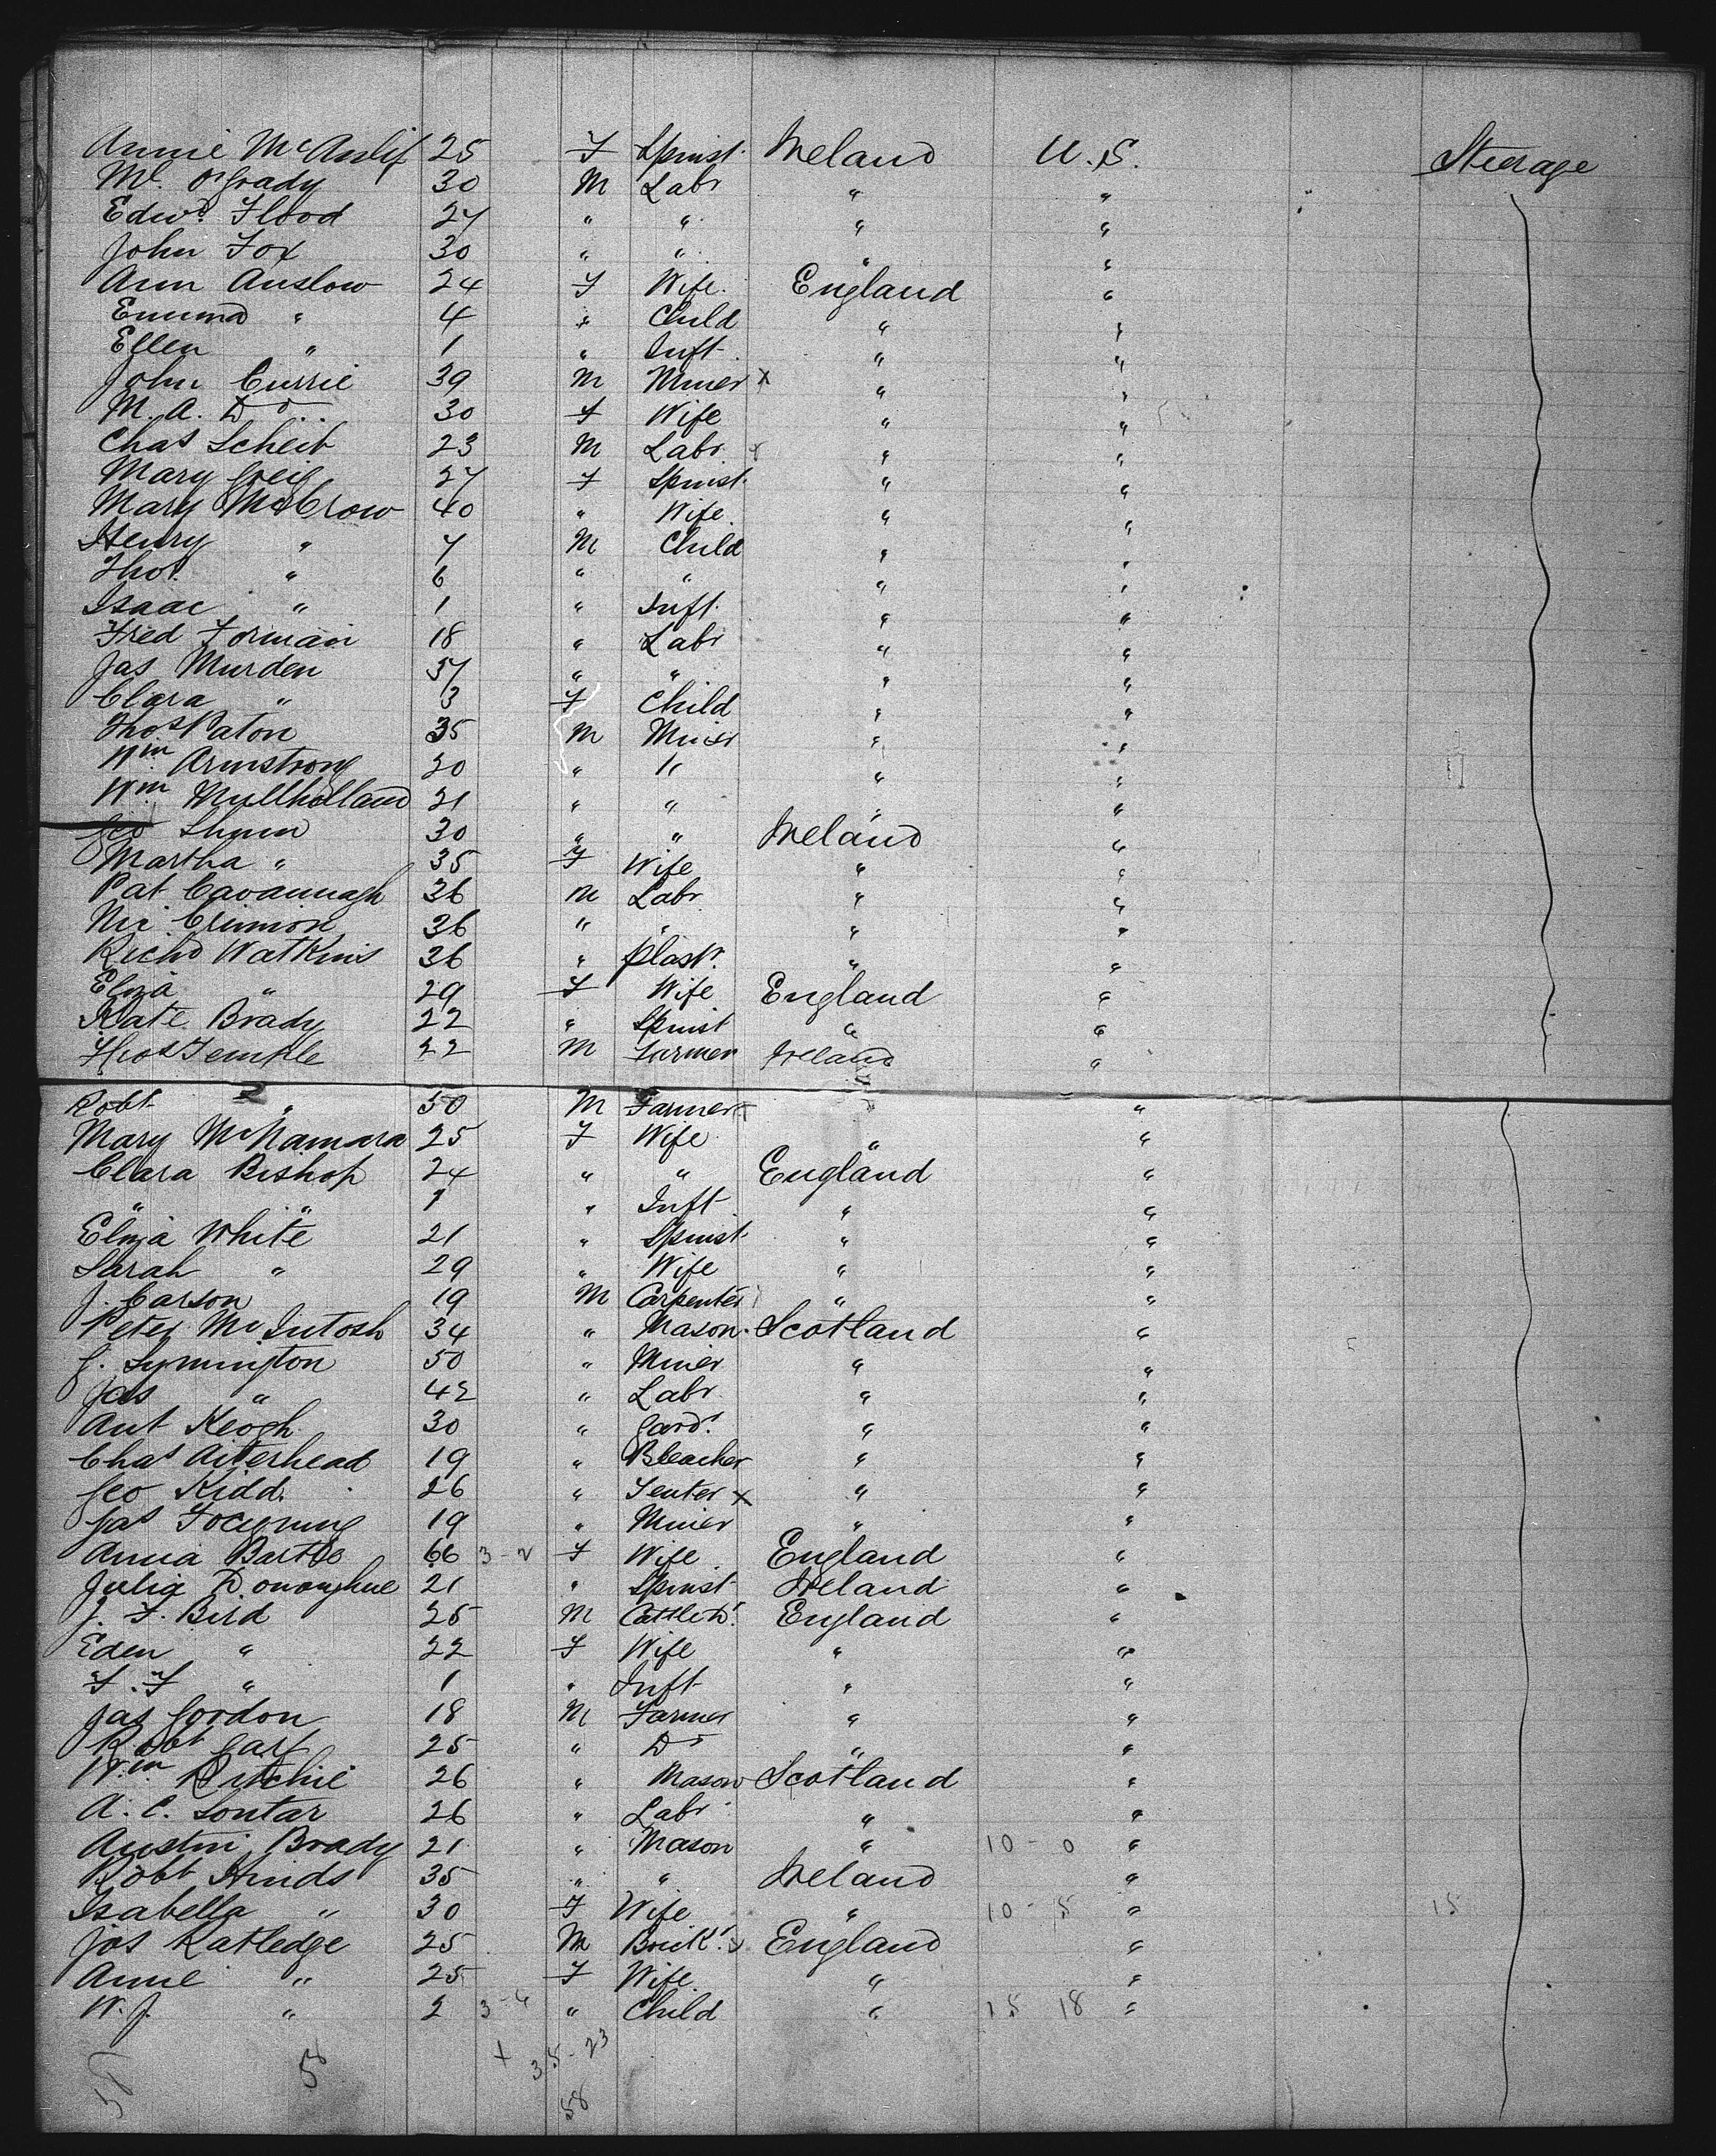 Annie McAulif 25 F Spinst. Ireland U.S. Steerage
Ml. O'Grady 30 M Labr " "
Edwd. Flood 27 " " " "
John Fox 30 " " " "
Ann Anslow 24 F Wife. England "
Emma " 4 " Child " "
Ellen " 1 " Inft. " "
John Currie 39 M Miner x " "
M. A. Do .. 30 F Wife " "
Chas Scheib 23 M Labr x " "
Mary Greig 27 F Spinst. " "
Mary McCrow 40 " Wife. " "
Henry " 7 M Child " "
Thos. " 6 " " " "
Isaac " 1 " Inft. " "
Fred Forman 18 " Labr " "
Jas Murden 37 " " " "
Clara " 3 F Child " "
Thos. Paton 35 M Miner " "
Wm. Armstrong 20 " " " "
Wm. Mullholland 21 " " " "
Geo 30 " " Ireland "
Martha " 35 F Wife " "
Pat Cavannagh 36 M Labr " "
36 " " " "
Richd Watkins 36 " Plastr. " "
Eliza " 29 F Wife England "
Kate Brady 22 " Spinst " "
Thos Temple 22 M Farmer Ireland "
Robt " 50 M Farmer " "
Mary McNamara 25 F Wife " "
Clara Bishop 24 " " England "
" " 1 " Inft " "
Eliza White 21 " Spinst. " "
Sarah " 29 " Wife " "
J. Carson 19 M Carpenter " "
Peter McIntosh 34 " Mason. Scotland "
J. Symington 50 " Miner " "
Jas " 42 " Labr " "
Ant Keogh 30 " Gardr. " "
Chas Aiterhead 19 " Bleacher " "
Geo Kidd. 26 " Tenter x " "
Jas 19 " Miner " "
Anna Bartle 66 3-2 F Wife England "
Julia Donoughue 21 " Spinst Ireland "
J. F. Bird 25 M Cattle Dr. England "
Eden " 22 F Wife " "
F. F " 1 " Inft " "
Jas Gordon 18 M Farmer " "
Robt 25 " Do " "
Wm. Ritchie 26 " Mason Scotland "
A. C. Soutar 26 " Labr " "
Austin Brady 21 " Mason " 10-0 "
Robt Hinds 35 " " Ireland "
Isabella " 30 F Wife " 10-5 " 15
Jos Ratledge 25 M Brickr. x England "
Anne " 25 F Wife " "
W. J. " 2 3-4 " Child " 15 18 "
58 + 35-23
58